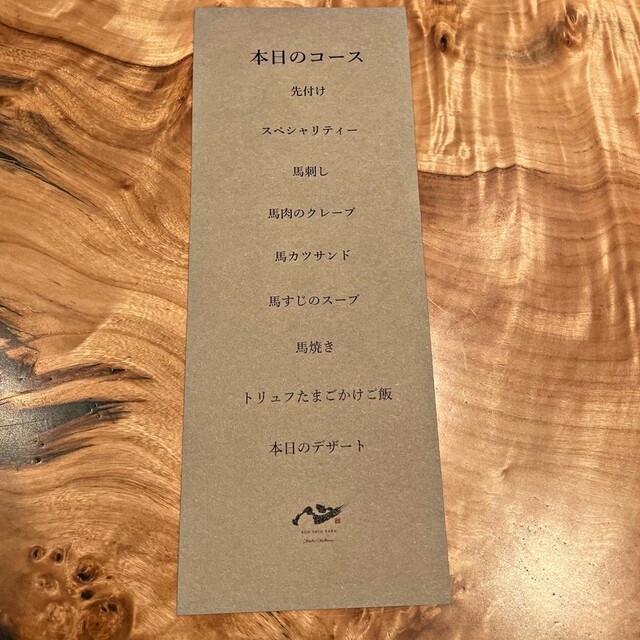 本日のコース
先付け
スペシャリティー
馬刺し
馬肉のクレープ
馬カツサンド
馬すじのスープ
馬焼き
トリュフたまごかけご飯
本日のデザート